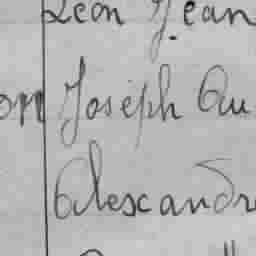 Léon Jean
on Joseph Au
Alexandre